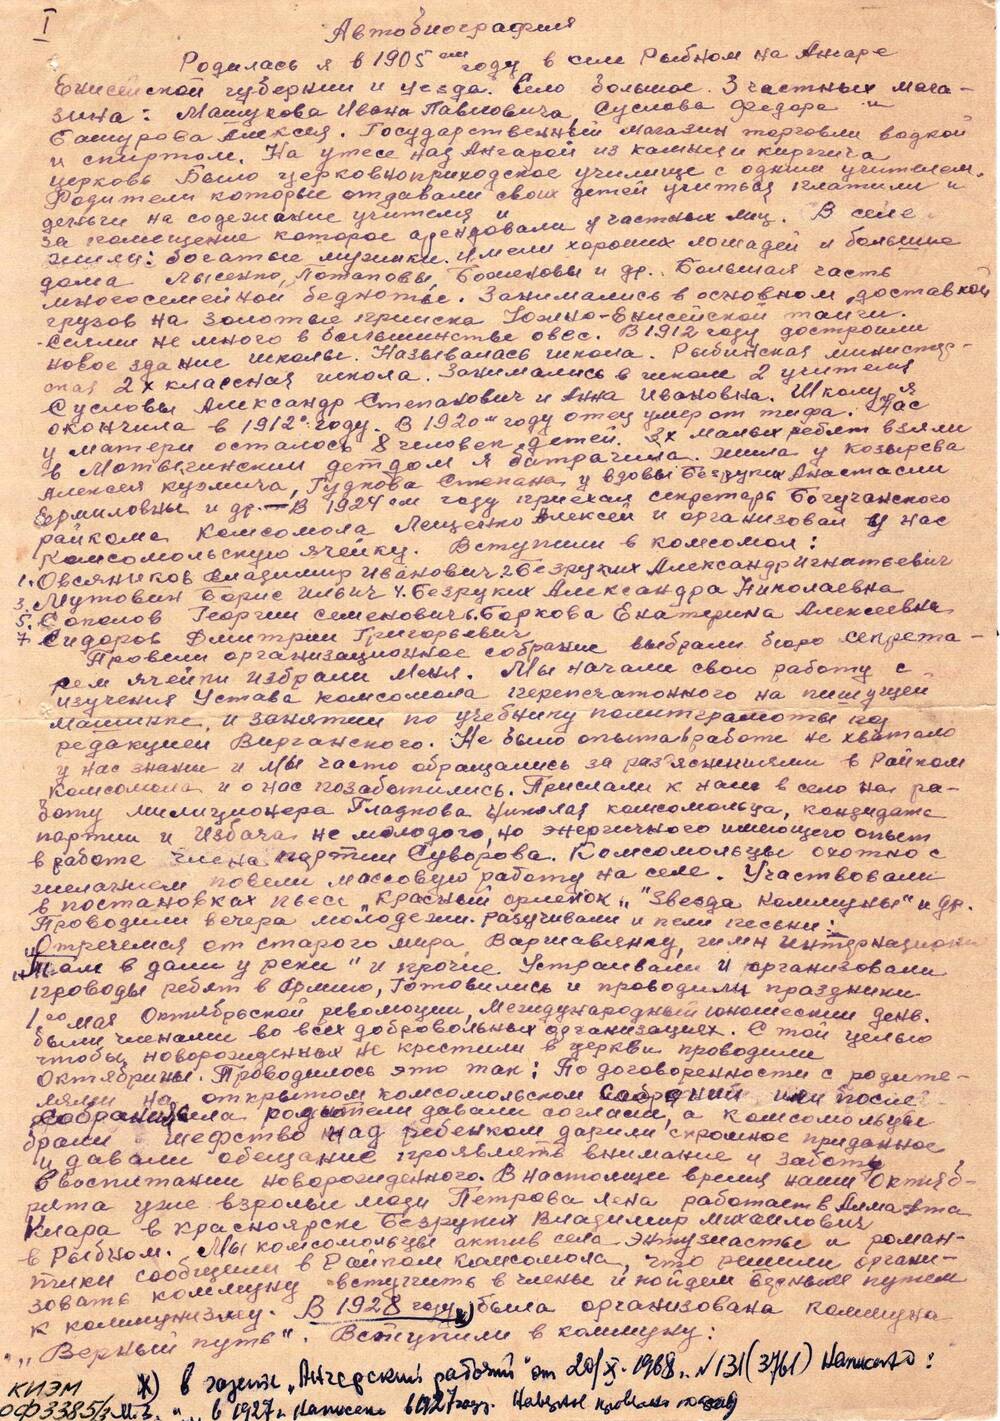 I
Автобиография
Родилась я в 1905 ом году в селе Рыбном на Ангаре
Енисейской губернии и уезда. Село большое. 3 частных мага-
зина: Машукова Ивана Павловича, Суслова Федора и
Башурова Алексея. Государственный магазин торговли водкой
и спиртом. На утесе над Ангарой из камня и кирпича
церковь Было церковноприходское училище с одним учителем.
Родители которые отдавали своих детей учиться платили и
деньги на содержание учителя и
за помещение которое арендовали у частных лиц. В селе
жили: богатые мужики. Имели хороших лошадей и большие
дома Лысенко, Потаповы, Боженовы и др. Большая часть
многосемейной бедноты. Занимались в основном доставкой
грузов на золотые прииска Южно-Енисейской тайги.
Сеяли не много в большинстве овес. В 1912 году достроили
новое здание школы. Называлась школа. Рыбинская министер-
ская 2х классная школа. Занимались в школе 2 учителя
Сусловы Александр Степанович и Анна Ивановна. Школу я
окончила в 1912 году. В 1920 году отец умер от тифа. Нас
у матери осталось 8 человек детей. 2х малых ребят взяли
в Мотыгинский детдом я батрачила. Жила у Козырева
Алексея Кузмича, Гудкова Степана у вдовы Безруких Анастасии
Ермиловны и др. — В 1924 ом году приехал секретарь Богучанского
райкома Комсомола Лещенко Алексей и организовал у нас
Комсомольскую ячейку. Вступили в комсомол:
1. Овсяников Владимир Иванович 2 Безруких Александр Игнатьевич
3. Мутовин Борис Ильич 4. Безруких Александра Николаевна
5. Соколов Георгий Семенович 6. Боркова Екатерина Алексеевна
7 Сидоров Дмитрий Григорьевич
Провели организационное собрание выбрали бюро секрета-
рем ячейки избрали меня. Мы начали свою работу с
изучения Устава комсомола перепечатонного на пишущей
машинке, и занятий по учебнику политграмоты под
редакцией Вирганского. Не было опыта в работе не хватало
у нас знаний и мы часто обращались за раз'яснениями в Райком
комсомола и о нас позаботились. Прислали к нам в село на ра-
боту милиционера Гладкова Николая комсомольца, кандидата
партии и Избача не молодого, но энергичного имеющего опыт
в работе члена партии Суворова. Комсомольцы охотно с
желанием повели массовую работу на селе. Участвовали
в постановках пьес „Красный орленок", „Звезда Коммуны" и др.
Проводили вечера молодежи. разучивали и пели песни:
„Отречемся от старого мира, Варшавянку, гимн Интернационал
„Там в дали у реки" и прочие. Устраивали и организовали
проводы ребят в Армию, Готовились и проводили праздники
1го мая Октябрьской революции, Международный юношеский день.
были членами во всех добровольных организациях. С той целью
чтобы новорожденных не крестили в церкви проводили
Октябрины. Проводилось это так: По договоренности с родите-
лями на открытом комсомольском собрании или после
собрания родители давали согласие, а комсомольцы
брали шефство над ребенком дарили скромное приданное
и давали обещание проявлять внимание и заботу
в воспитании новорожденного. В настоящие время наши Октяб-
рята уже взрослые люди Петрова Лена работает в Алма Ата
Клара в Красноярске Безруких Владимир Михайлович
в Рыбном. Мы комсомольцы актив села энтузиасты и роман-
тики сообщили в Райком комсомола, что решили органи-
зовать коммуну вступить в члены и пойдем верным путем
к коммунизму. В 1928 году x) была организована коммуна
„Верный путь". Вступили в коммуну:
x) в газете „Ангарский рабочий" от 20/X-1968г. № 131 (3761) Написано:
КИЭМ
ОФ 3385/3 в 1927г. Написано в 1927 году.